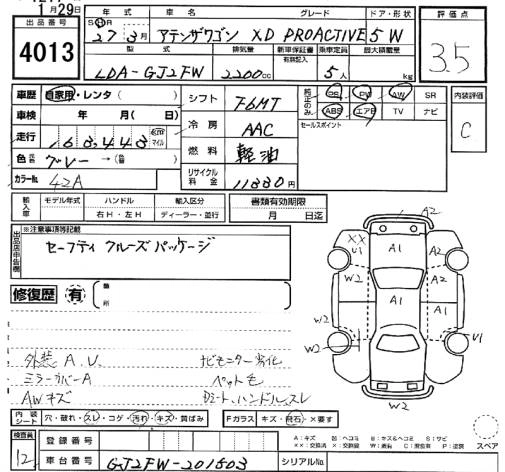 月29日
出品番号
4013
年 式 車 名 グレード ドア・形状
S H R 27年3月 アテンザワゴン XD PROACTIVE 5W
型 式 排気量 新車保証書 乗車定員 最大積載量
有効記入
LDA-GJ2FW 2200cc 5人 kg
評価点
3.5
車歴 自家用・レンタ( )
車検 年 月( 日)
走行 163,443 km マイル
色 グレー → (色替)
カラーNo. 42A
シフト F6MT
冷房 AAC
燃料 軽油
リサイクル料金 11880円
純正のみ PS PW AW SR
ABS エアB TV ナビ
セールスポイント
内装評価
C
輸入車 モデル年式 ハンドル 輸入区分
右H・左H ディーラー・並行
書類有効期限
月 日迄
出品店申告欄
※注意事項等記載
セーフティクルーズパッケージ
修復歴 有 箇所
外装 A.U. ナビモニター劣化
ミラーカバーA ペット毛
AWキズ シート、ハンドルスレ
A2
XX
U1
A1
A2
W2
A2
A1
A1
W2
W2
U1
W2
内装シート 穴・破れ・スレ・コゲ・汚れ・キズ・黄ばみ Fガラス キズ・飛石・×要す
検査員 12
登録番号
車台番号 GJ2FW-201503 シリアルNo.
A:キズ U:ヘコミ B:キズ&ヘコミ S:サビ
XX:交換済 X:要交換 W:波 C:腐食 P:塗装
スペア